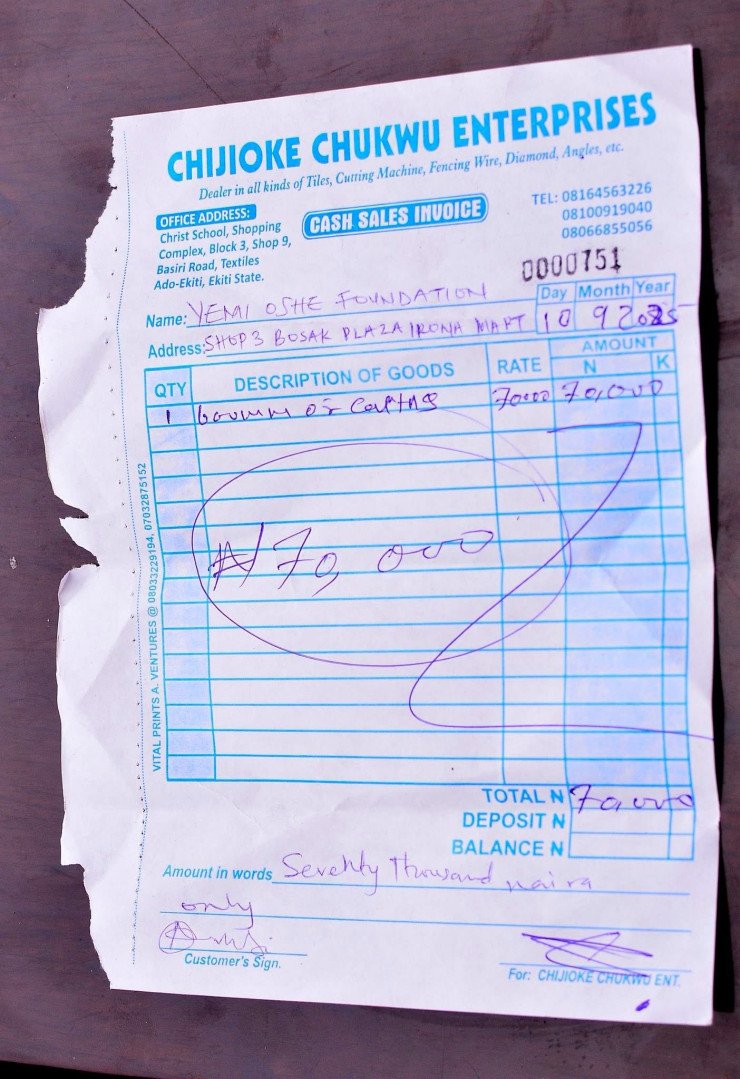 CHIJIOKE CHUKWU ENTERPRISES
Dealer in all kinds of Tiles, Cutting Machine, Fencing Wire, Diamond, Angles, etc.
OFFICE ADDRESS:
Christ School, Shopping
Complex, Block 3, Shop 9,
Basiri Road, Textiles
Ado-Ekiti, Ekiti State.
CASH SALES INVOICE
TEL: 08164563226
08100919040
08066855056
0000751
Name: YEMI OSHE FOUNDATION
Address: SHOP 3 BOSAK PLAZA IRONA MAPT
Day Month Year
10 9 2025
QTY DESCRIPTION OF GOODS RATE AMOUNT
N K
1 of 70000 70,000
₦70,000
TOTAL N 70,000
DEPOSIT N
BALANCE N
Amount in words Seventy Thousand naira
only
Customer's Sign.
For: CHIJIOKE CHUKWU ENT.
VITAL PRINTS A. VENTURES @ 08033229194, 07032875152